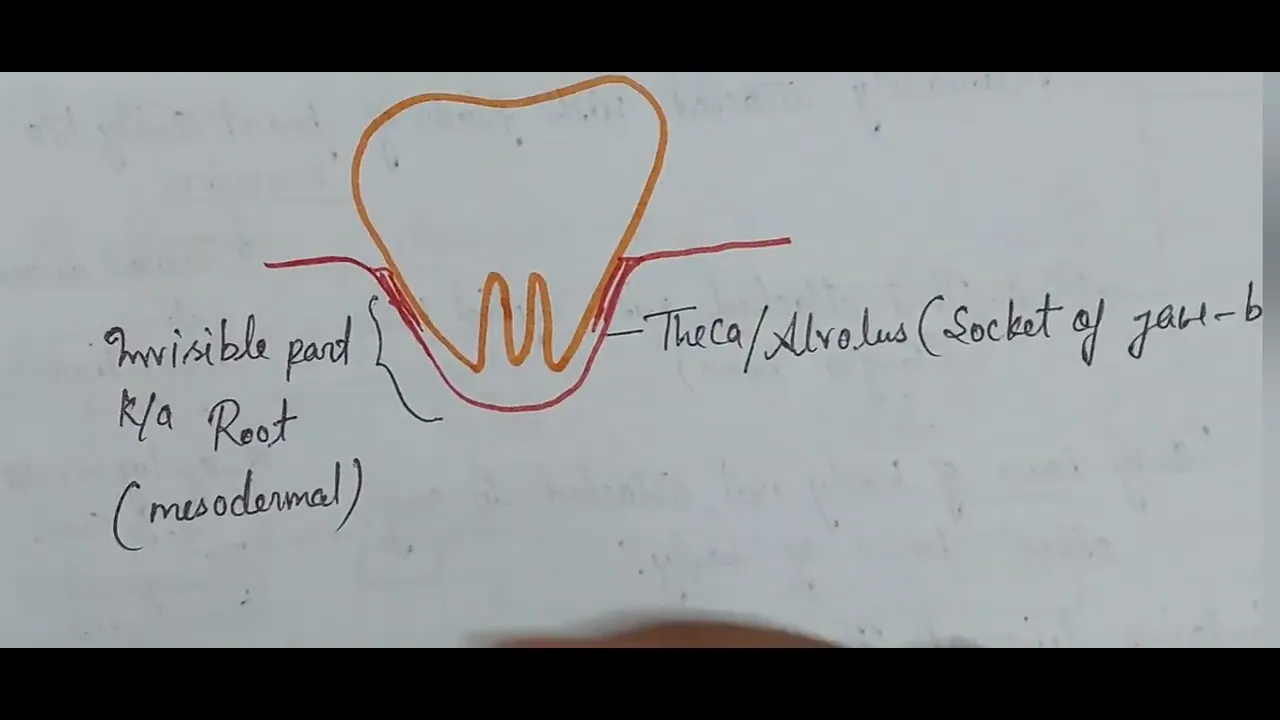 Invisible part
k/a Root
(mesodermal)
Theca/Alvolus (Socket of jaw-b